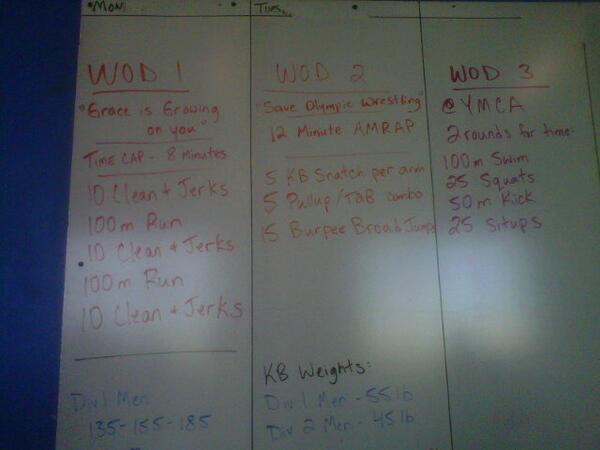 Mon.
WOD 1
"Grace is Growing
on you"
TIME CAP - 8 Minutes
10 Clean + Jerks
100m Run
10 Clean + Jerks
100m Run
10 Clean + Jerks
Div 1 Men
135-155-185
Tues.
WOD 2
"Save Olympic Wrestling"
12 Minute AMRAP
5 KB Snatch per arm
5 Pullup/T2B combo
15 Burpee Broad Jumps
KB Weights:
Div 1 Men - 55lb
Div 2 Men - 45lb
WOD 3
@YMCA
2 rounds for time.
100m Swim
25 Squats
50m Kick
25 Situps